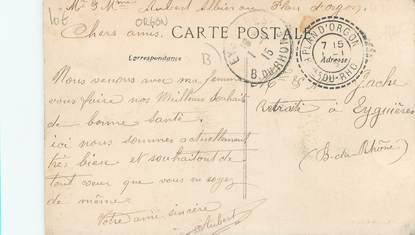 lot ORGON
Mr & Mme Aubert Albin au Plan d'orgon
Chers amis.
CARTE POSTALE
Correspondance
Adresse
B
PLAN D'ORGON
7 15
1 - 1
15
B. DU RHONE
Nous venons avec ma femme
vous faire nos Meilleurs Souhaits
de bonne Santé.
ici nous sommes actuellement
très bien et souhaitont de
tout cœur que vous en soyez
de même
Votre ami sincère
Aubert
Jache
Retraité à Eyguières
(B-du-Rhône)